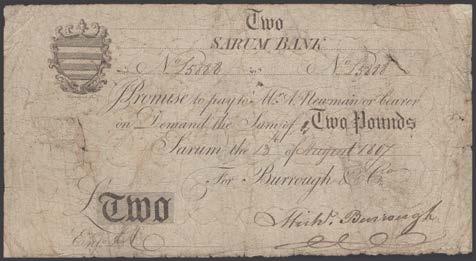 Two
SARUM BANK
No 15888 No 15888
Promise to pay to Mr. A. Newman or bearer
on Demand the Sum of Two Pounds
Sarum the 13th of August 1807
For Burrough & Co
£ Two
Michl. Burrough
Entd.